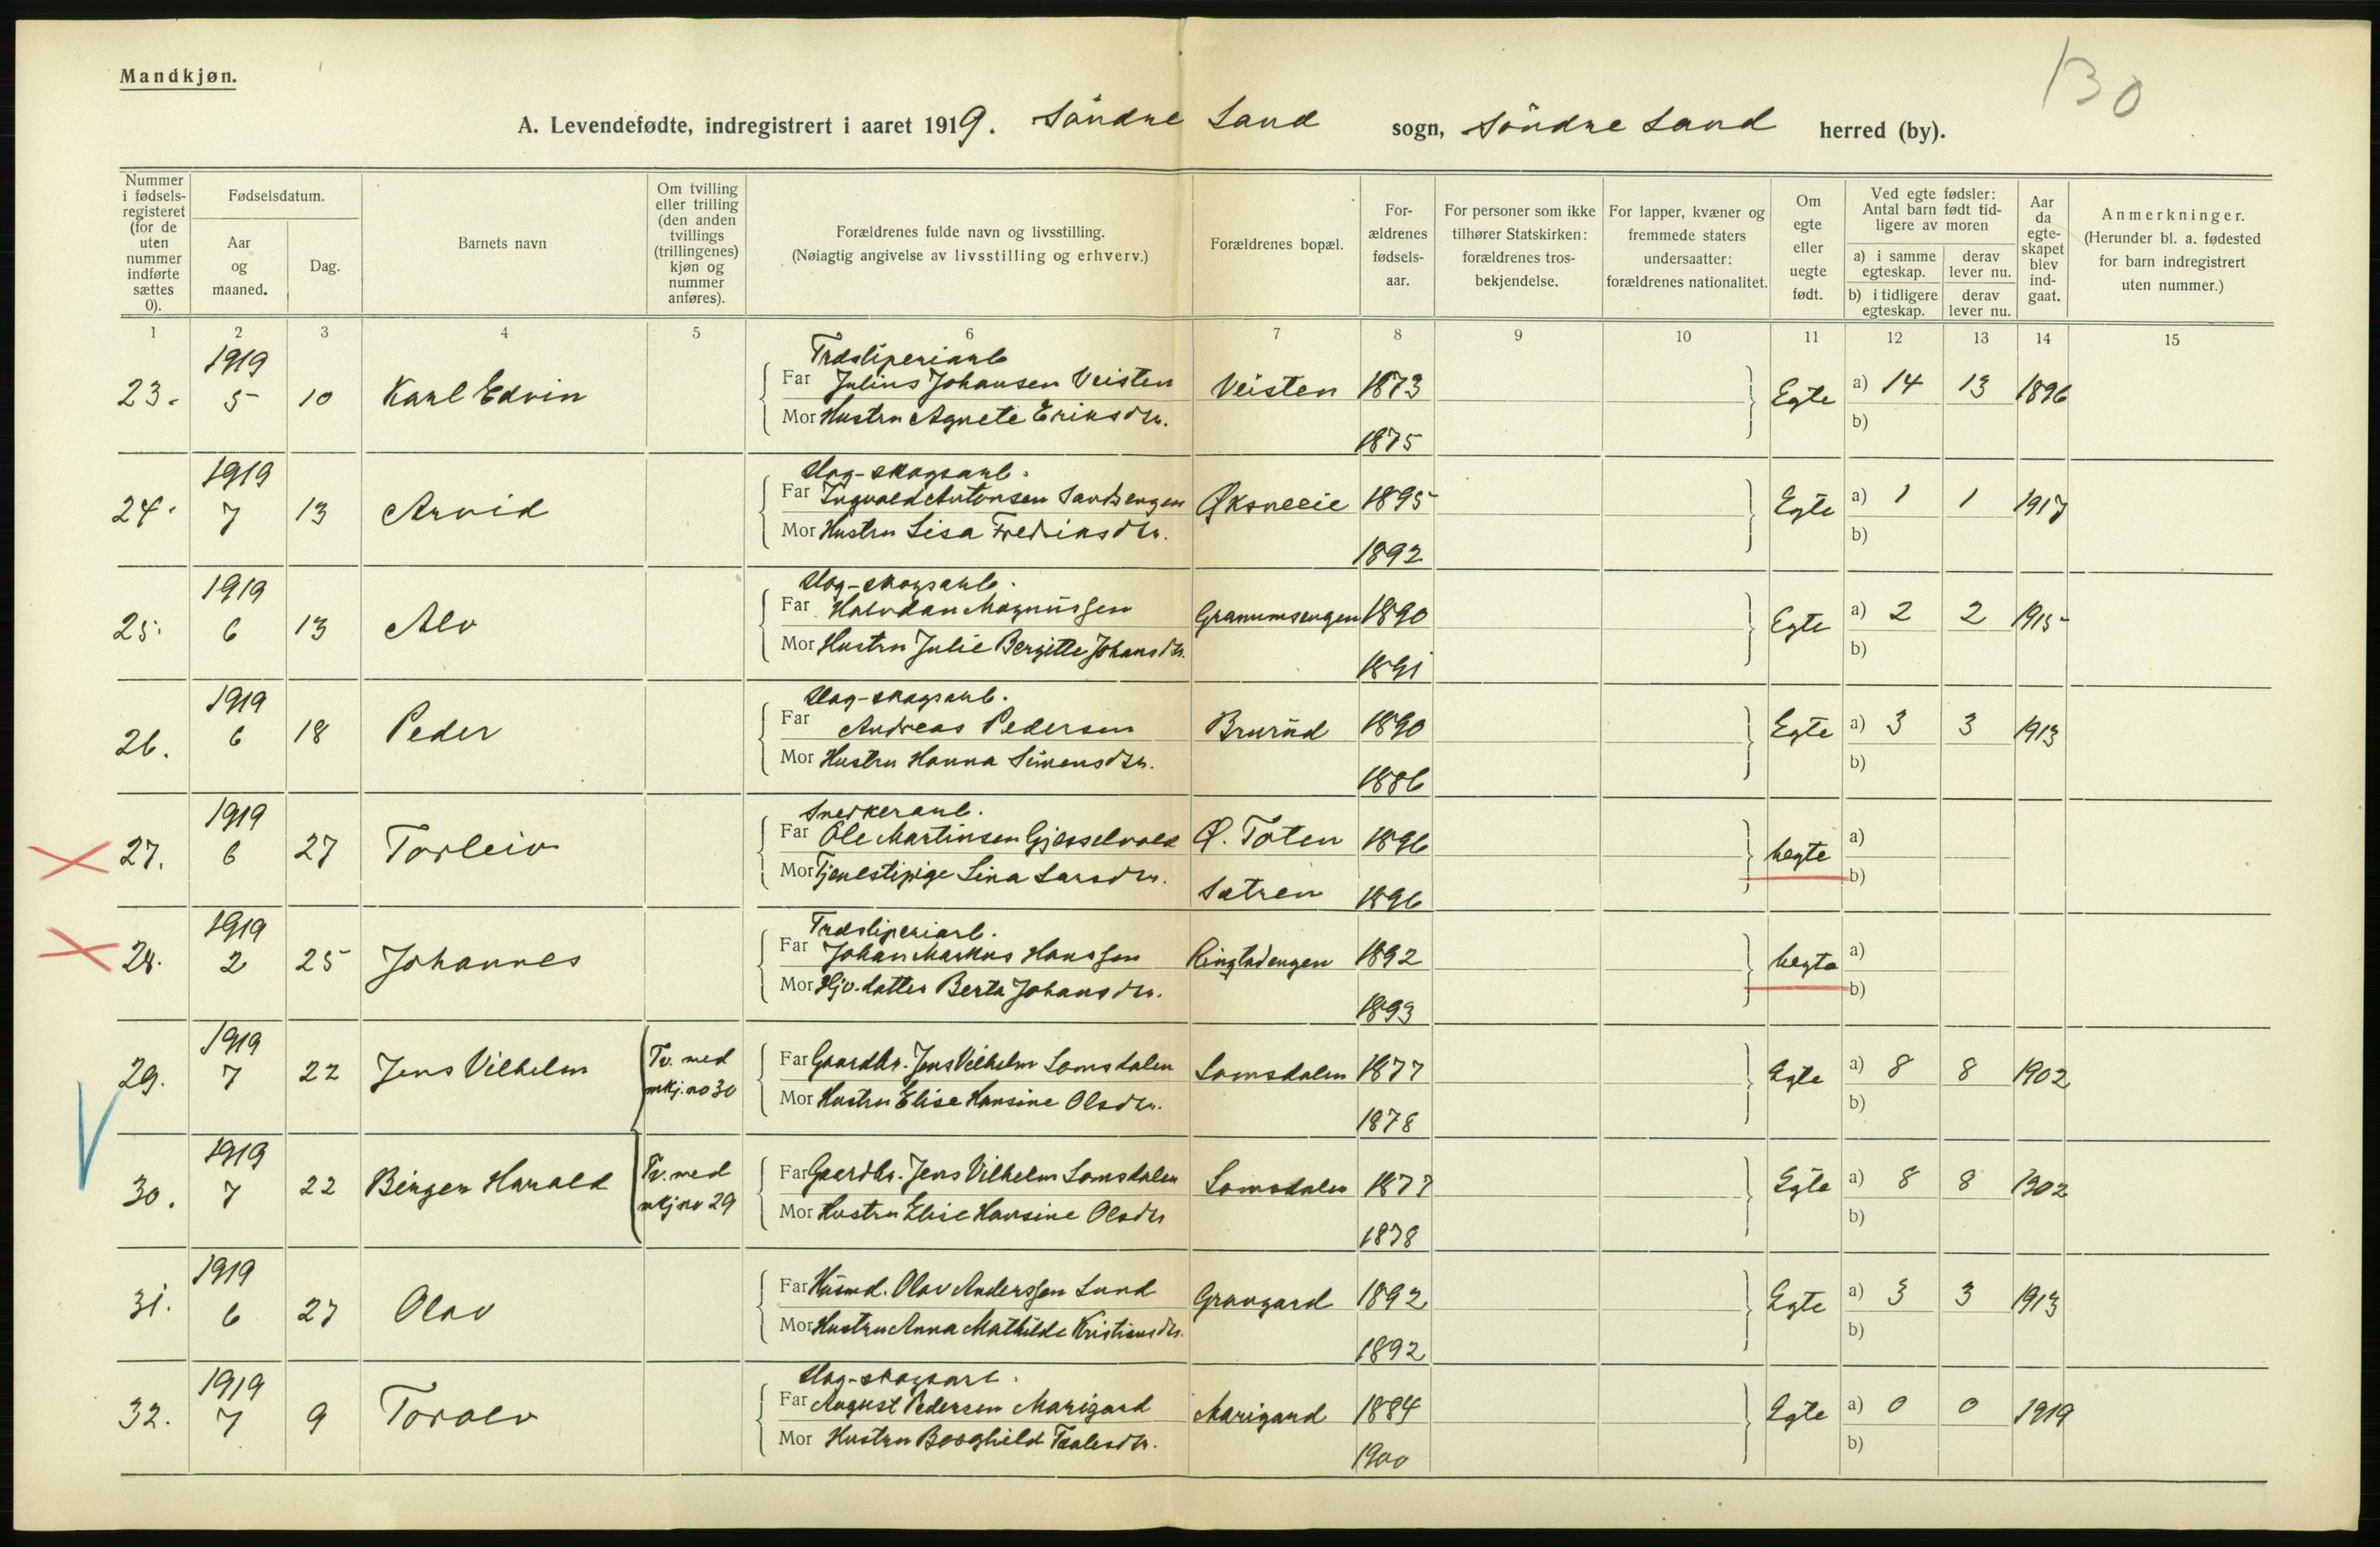 Mandkjøn.
130
A. Levendefødte, indregistrert i aaret 1919. Söndre Land sogn, Söndre Land herred (by).
Nummer i fødsels-registeret (for de uten nummer indførte sættes 0).
Fødselsdatum.
Aar og maaned.
Dag.
Barnets navn
Om tvilling eller trilling (den anden tvillings (trillingenes) kjøn og nummer anføres).
Forældrenes fulde navn og livsstilling.
(Nøiagtig angivelse av livsstilling og erhverv.)
Forældrenes bopæl.
For-ældrenes fødsels-aar.
For personer som ikke tilhører Statskirken: forældrenes tros-bekjendelse.
For lapper, kvæner og fremmede staters undersaatter: forældrenes nationalitet.
Om egte eller uegte født.
Ved egte fødsler: Antal barn født tid-ligere av moren
a) i samme egteskap.
derav lever nu.
b) i tidligere egteskap.
derav lever nu.
Aar da egte-skapet blev ind-gaat.
Anmerkninger.
(Herunder bl. a. fødested for barn indregistrert uten nummer.)
1 2 3 4 5 6 7 8 9 10 11 12 13 14 15
1919 Træsliperiarb
23. 5 10 Karl Edvin Far Julius Johansen Veisten Veisten 1873 Egte a) 14 13 1896
Mor Hustru Agnete Eriksdtr. 1875 b)
1919 Hog-skogsarb.
24. 7 13 Arvid Far Ingvald Antonsen Sandsengen Øksneeie 1895 Egte a) 1 1 1917
Mor Hustru Lisa Fredriksdtr. 1892 b)
1919 Hog-skogsarb.
25. 6 13 Alv Far Halvdan Magnussen Granumsengen 1890 Egte a) 2 2 1915
Mor Hustru Julie Bergitte Johansdtr. 1891 b)
1919 Hog-skogsarb.
26. 6 18 Peder Far Andreas Pedersen Brurud 1890 Egte a) 3 3 1913
Mor Hustru Hanna Simensdtr. 1886 b)
1919 Snedkerarb.
27. 6 27 Torleiv Far Ole Martinsen Gjesselvold Ø. Toten 1896 Uegte a)
Mor Tjenestepige Lina Larsdtr. Sætren 1896 b)
1919 Træsliperiarb.
28. 2 25 Johannes Far Johan Markus Hanssen Ringludengen 1892 Uegte a)
Mor Hjv. datter Berta Johansdtr. 1893 b)
1919
29. 7 22 Jens Vilhelm Tv. med mkj. no 30 Far Gaardbr. Jens Vilhelm Lomsdalen Lomsdalen 1877 Egte a) 8 8 1902
Mor Hustru Elise Hansine Olsdtr. 1878 b)
1919
30. 7 22 Birger Harald Tv. med mkj no 29 Far Gaardbr. Jens Vilhelm Lomsdalen Lomsdalen 1877 Egte a) 8 8 1902
Mor Hustru Elise Hansine Olsdtr 1878 b)
1919
31. 6 27 Olav Far Husmd. Olav Anderssen Lund Grangard 1892 Egte a) 3 3 1913
Mor Hustru Anna Mathilde Kristiansdtr. 1892 b)
1919 Hog-skogsarb.
32. 7 9 Toralv Far August Pedersen Marigard Marigard 1884 Egte a) 0 0 1919
Mor Hustru Borghild Taalesdtr. 1900 b)